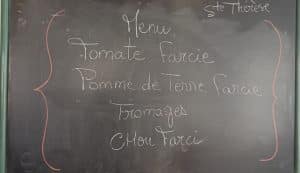 Ste Thérèse
Menu
Tomate Farcie
Pomme de Terre Farcie
Fromages
CHou Farci